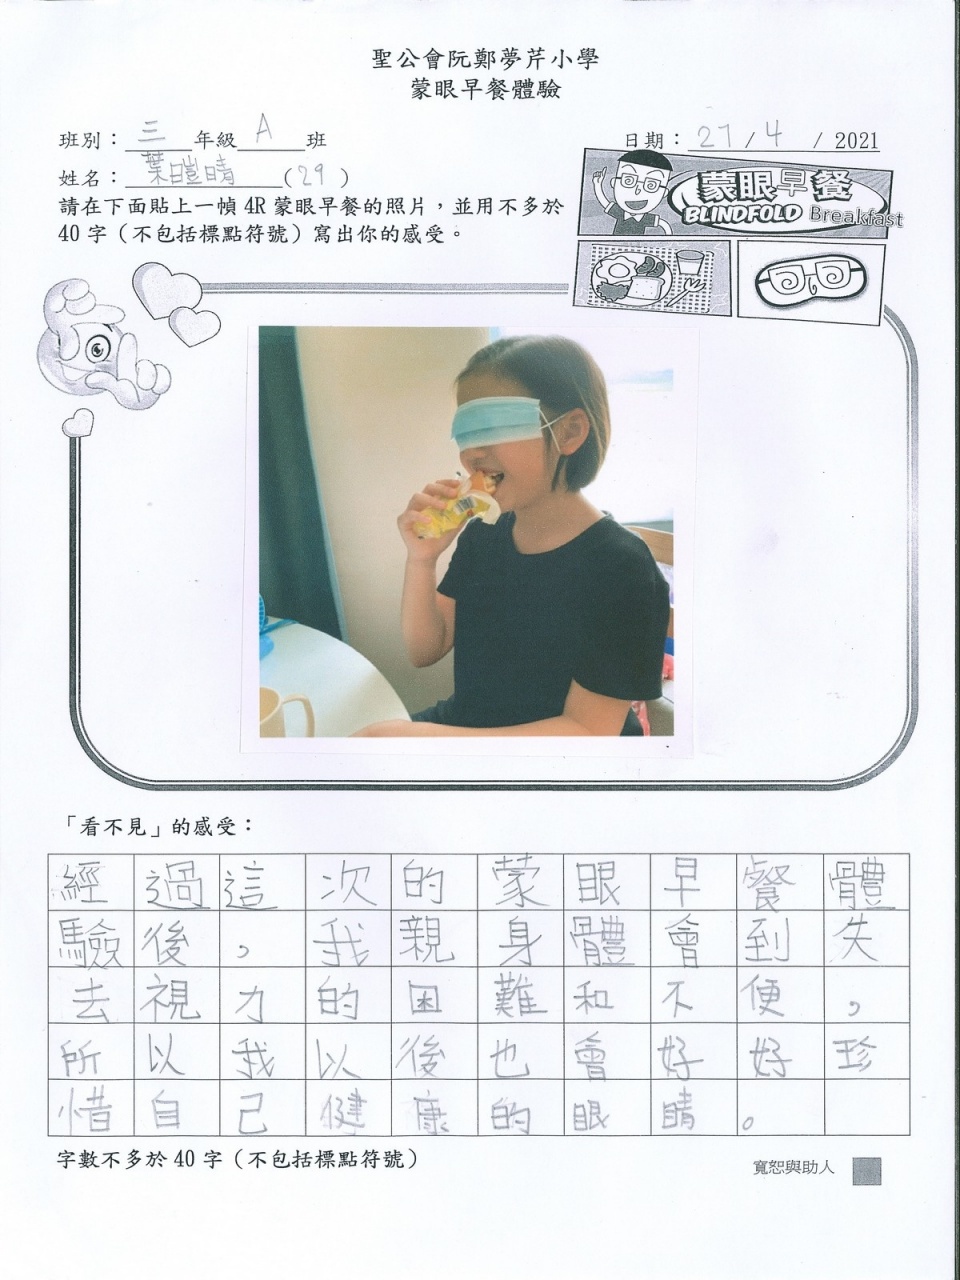 聖公會阮鄭夢芹小學
蒙眼早餐體驗
班別：三年級A班
日期：27/4/2021
姓名：葉暟晴(29)
請在下面貼上一幀 4R 蒙眼早餐的照片，並用不多於
40 字（不包括標點符號）寫出你的感受。
蒙眼早餐
BLINDFOLD Breakfast
「看不見」的感受：
經過這次的蒙眼早餐體
驗後，我親身體會到失
去視力的困難和不便，
所以我以後也會好好珍
惜自己健康的眼睛。
字數不多於 40 字（不包括標點符號）
寬恕與助人